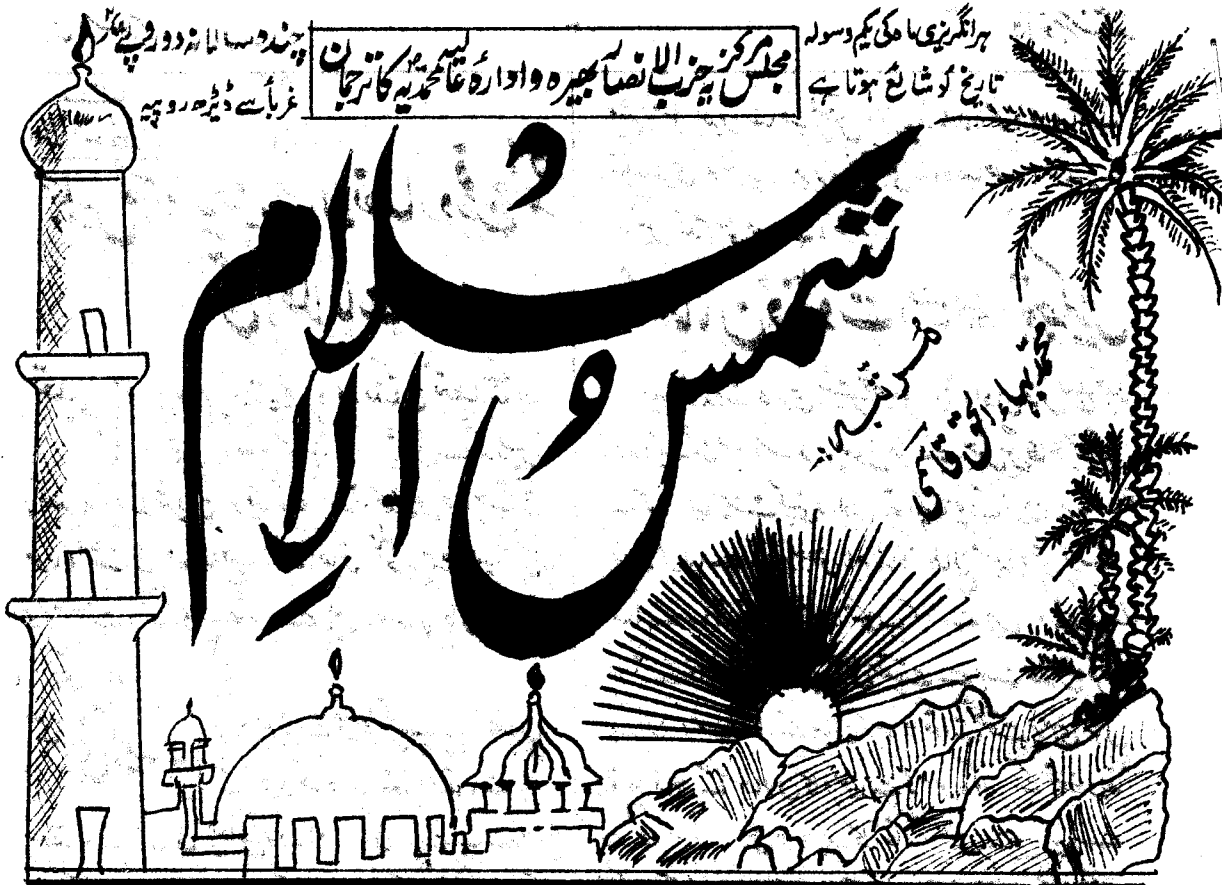 ہر انگریزی ماہ کی یکم و سولہ
تاریخ کو شائع ہوتا ہے
مجلس مرکزیہ حزب الانصار بھیرہ و ادارہ عالیہ محمدیہ کا ترجمان
چندہ سالانہ دو روپے
غربأ سے ڈیڑھ روپیہ
شمس الاسلام
مُدیر
محمد بہاء الحق قاسمی